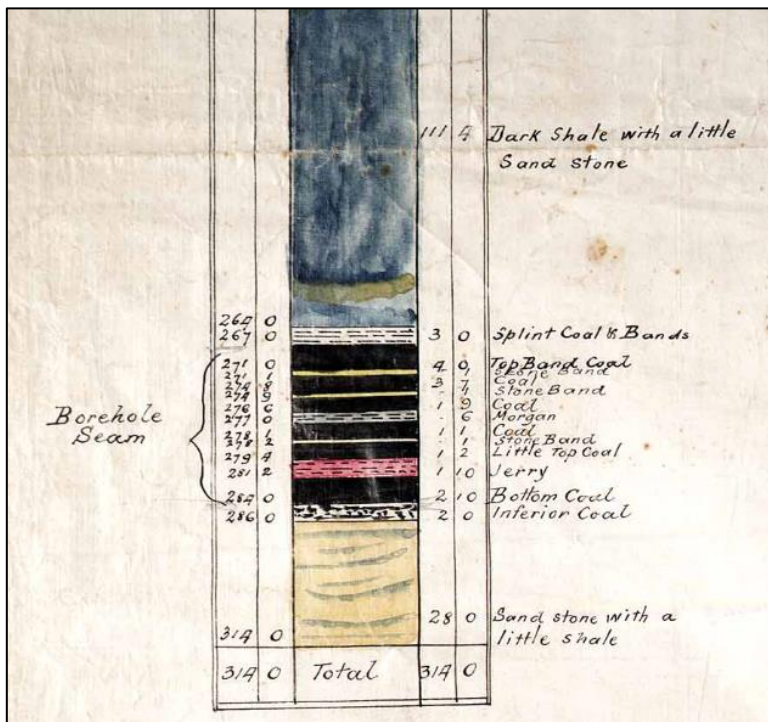 111 4 Dark Shale with a little
Sand Stone
264 0
267 0 3 0 Splint Coal & Bands
271 0 4 0 Top Band Coal
271 1 - 1 Stone Band
274 8 3 7 Coal
274 9 - 1 Stone Band
276 6 1 9 Coal
277 0 - 6 Morgan
278 1 1 1 Coal
278 2 - 1 Stone Band
279 4 1 2 Little Top Coal
281 2 1 10 Jerry
284 0 2 10 Bottom Coal
286 0 2 0 Inferior Coal
Borehole
Seam
28 0 Sand stone with a
little shale
314 0
314 0 Total 314 0